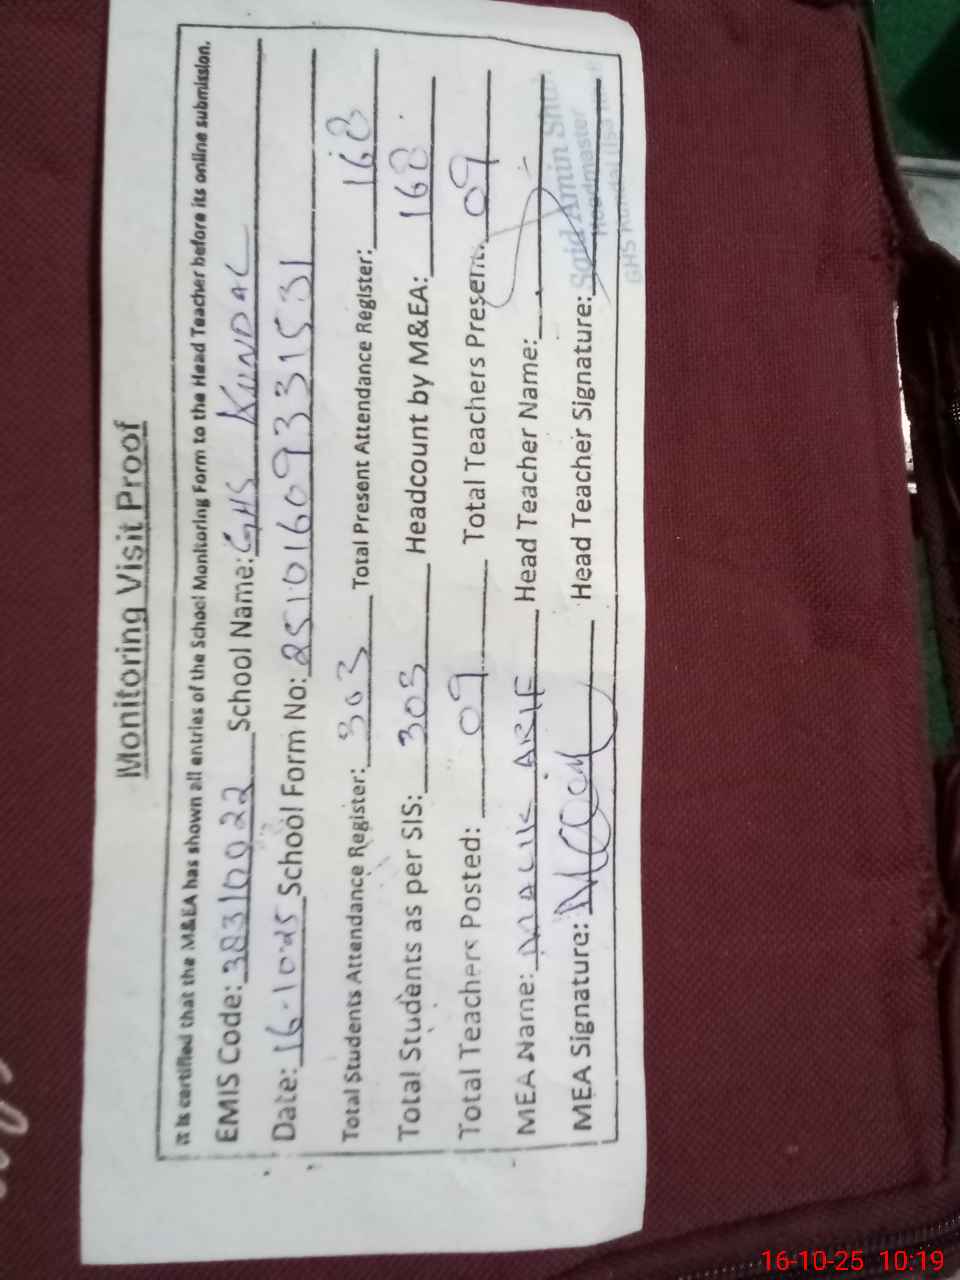 Monitoring Visit Proof
It is certified that the M&EA has shown all entries of the School Monitoring Form to the Head Teacher before its online submission.
EMIS Code: 38310022 School Name: GHS KUNDAL
Date: 16-10-25 School Form No: 25101609331531
Total Students Attendance Register: 303 Total Present Attendance Register: 168
Total Students as per SIS: 303 Headcount by M&EA: 168
Total Teachers Posted: 09 Total Teachers Present: 09
MEA Name: MALIK ARIF Head Teacher Name:
MEA Signature: Head Teacher Signature:
Said Amin Shah
Headmaster
GHS Kundal
16-10-25 10:19